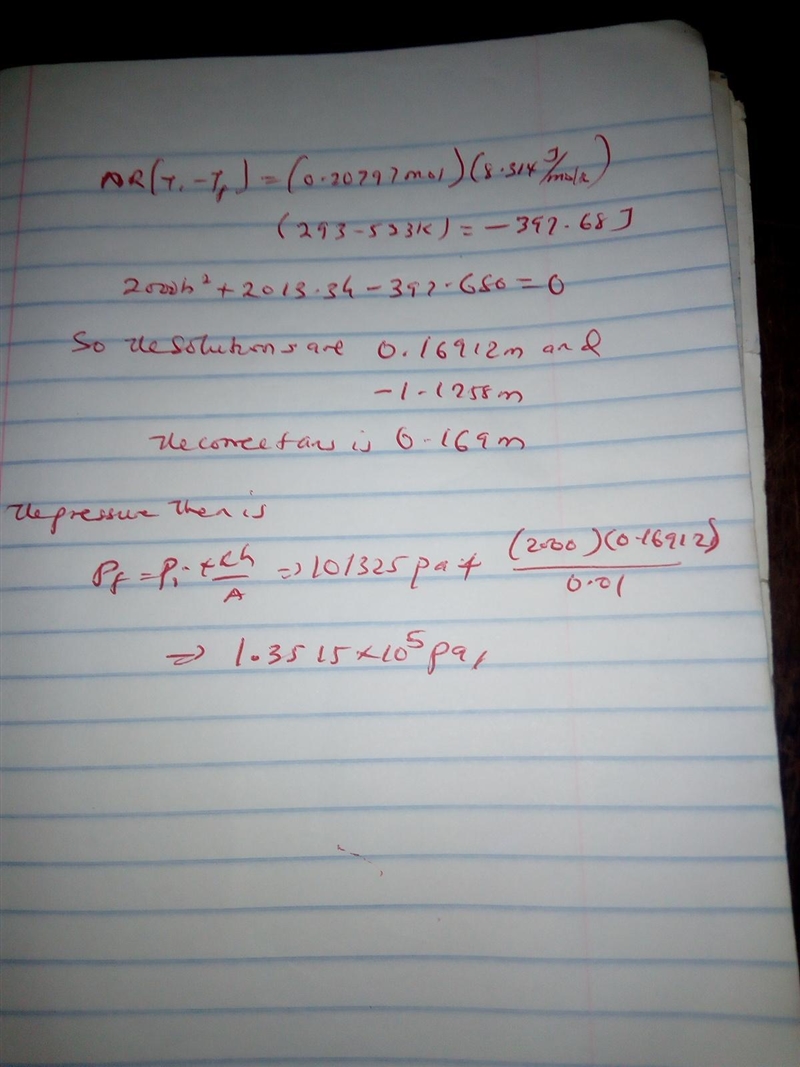 nR(Ti - Tf) = (0.20797mol)(8.314 J/molK)
(293-523K) = -397.68J
2000h² + 2013.3h - 397.680 = 0
So the solutions are 0.16912m and
-1.1258m
the correct ans is 0.169m
the pressure then is
Pf = Pi + kh/A => 101325pa + (2000)(0.16912)/0.01
=> 1.3515×10⁵pa,